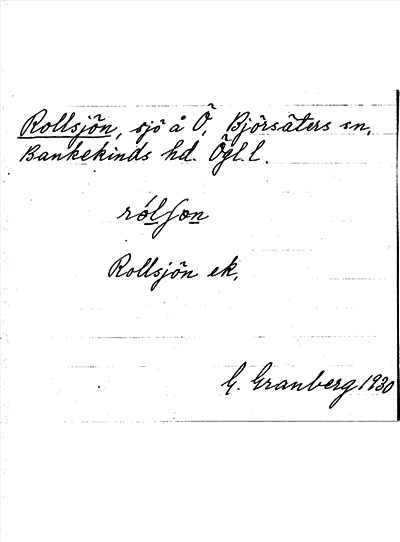 Rollsjön, sjö å Ö, Björsäters sn,
Bankekinds hd. Ögl. l.
Rollsjön ek,
G. Granberg 1930